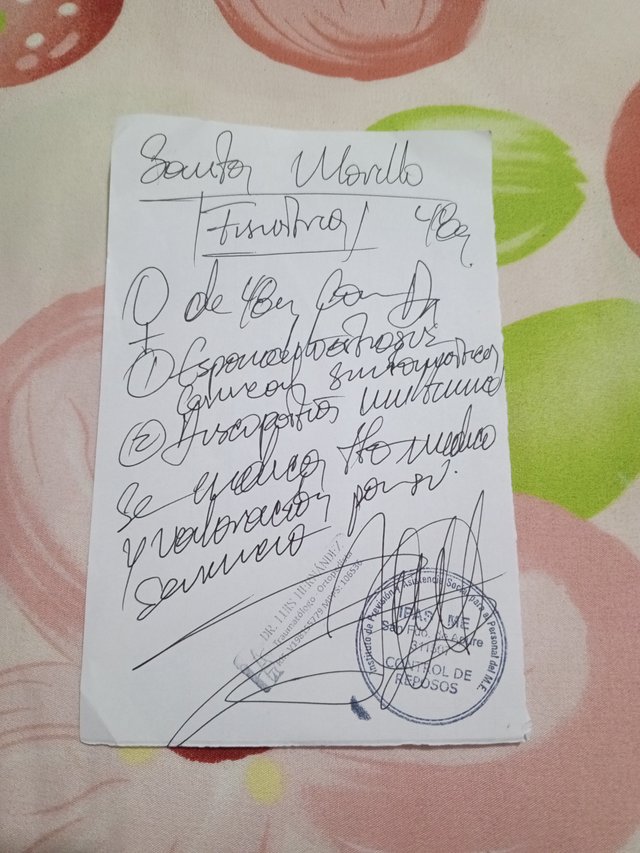 Santa Morillo
Fisiatría 48a
♀ de 48a con Dx
① Espondiloartrosis
cervical sintomática
② Discopatías
Se indica tto medico
y valoración por su
servicio
DR. LUIS HERNÁNDEZ
Traumatólogo - Ortopedista
Instituto de Previsión y Asistencia Social para el Personal del M.E.
IPAS ME
CONTROL DE
REPOSOS